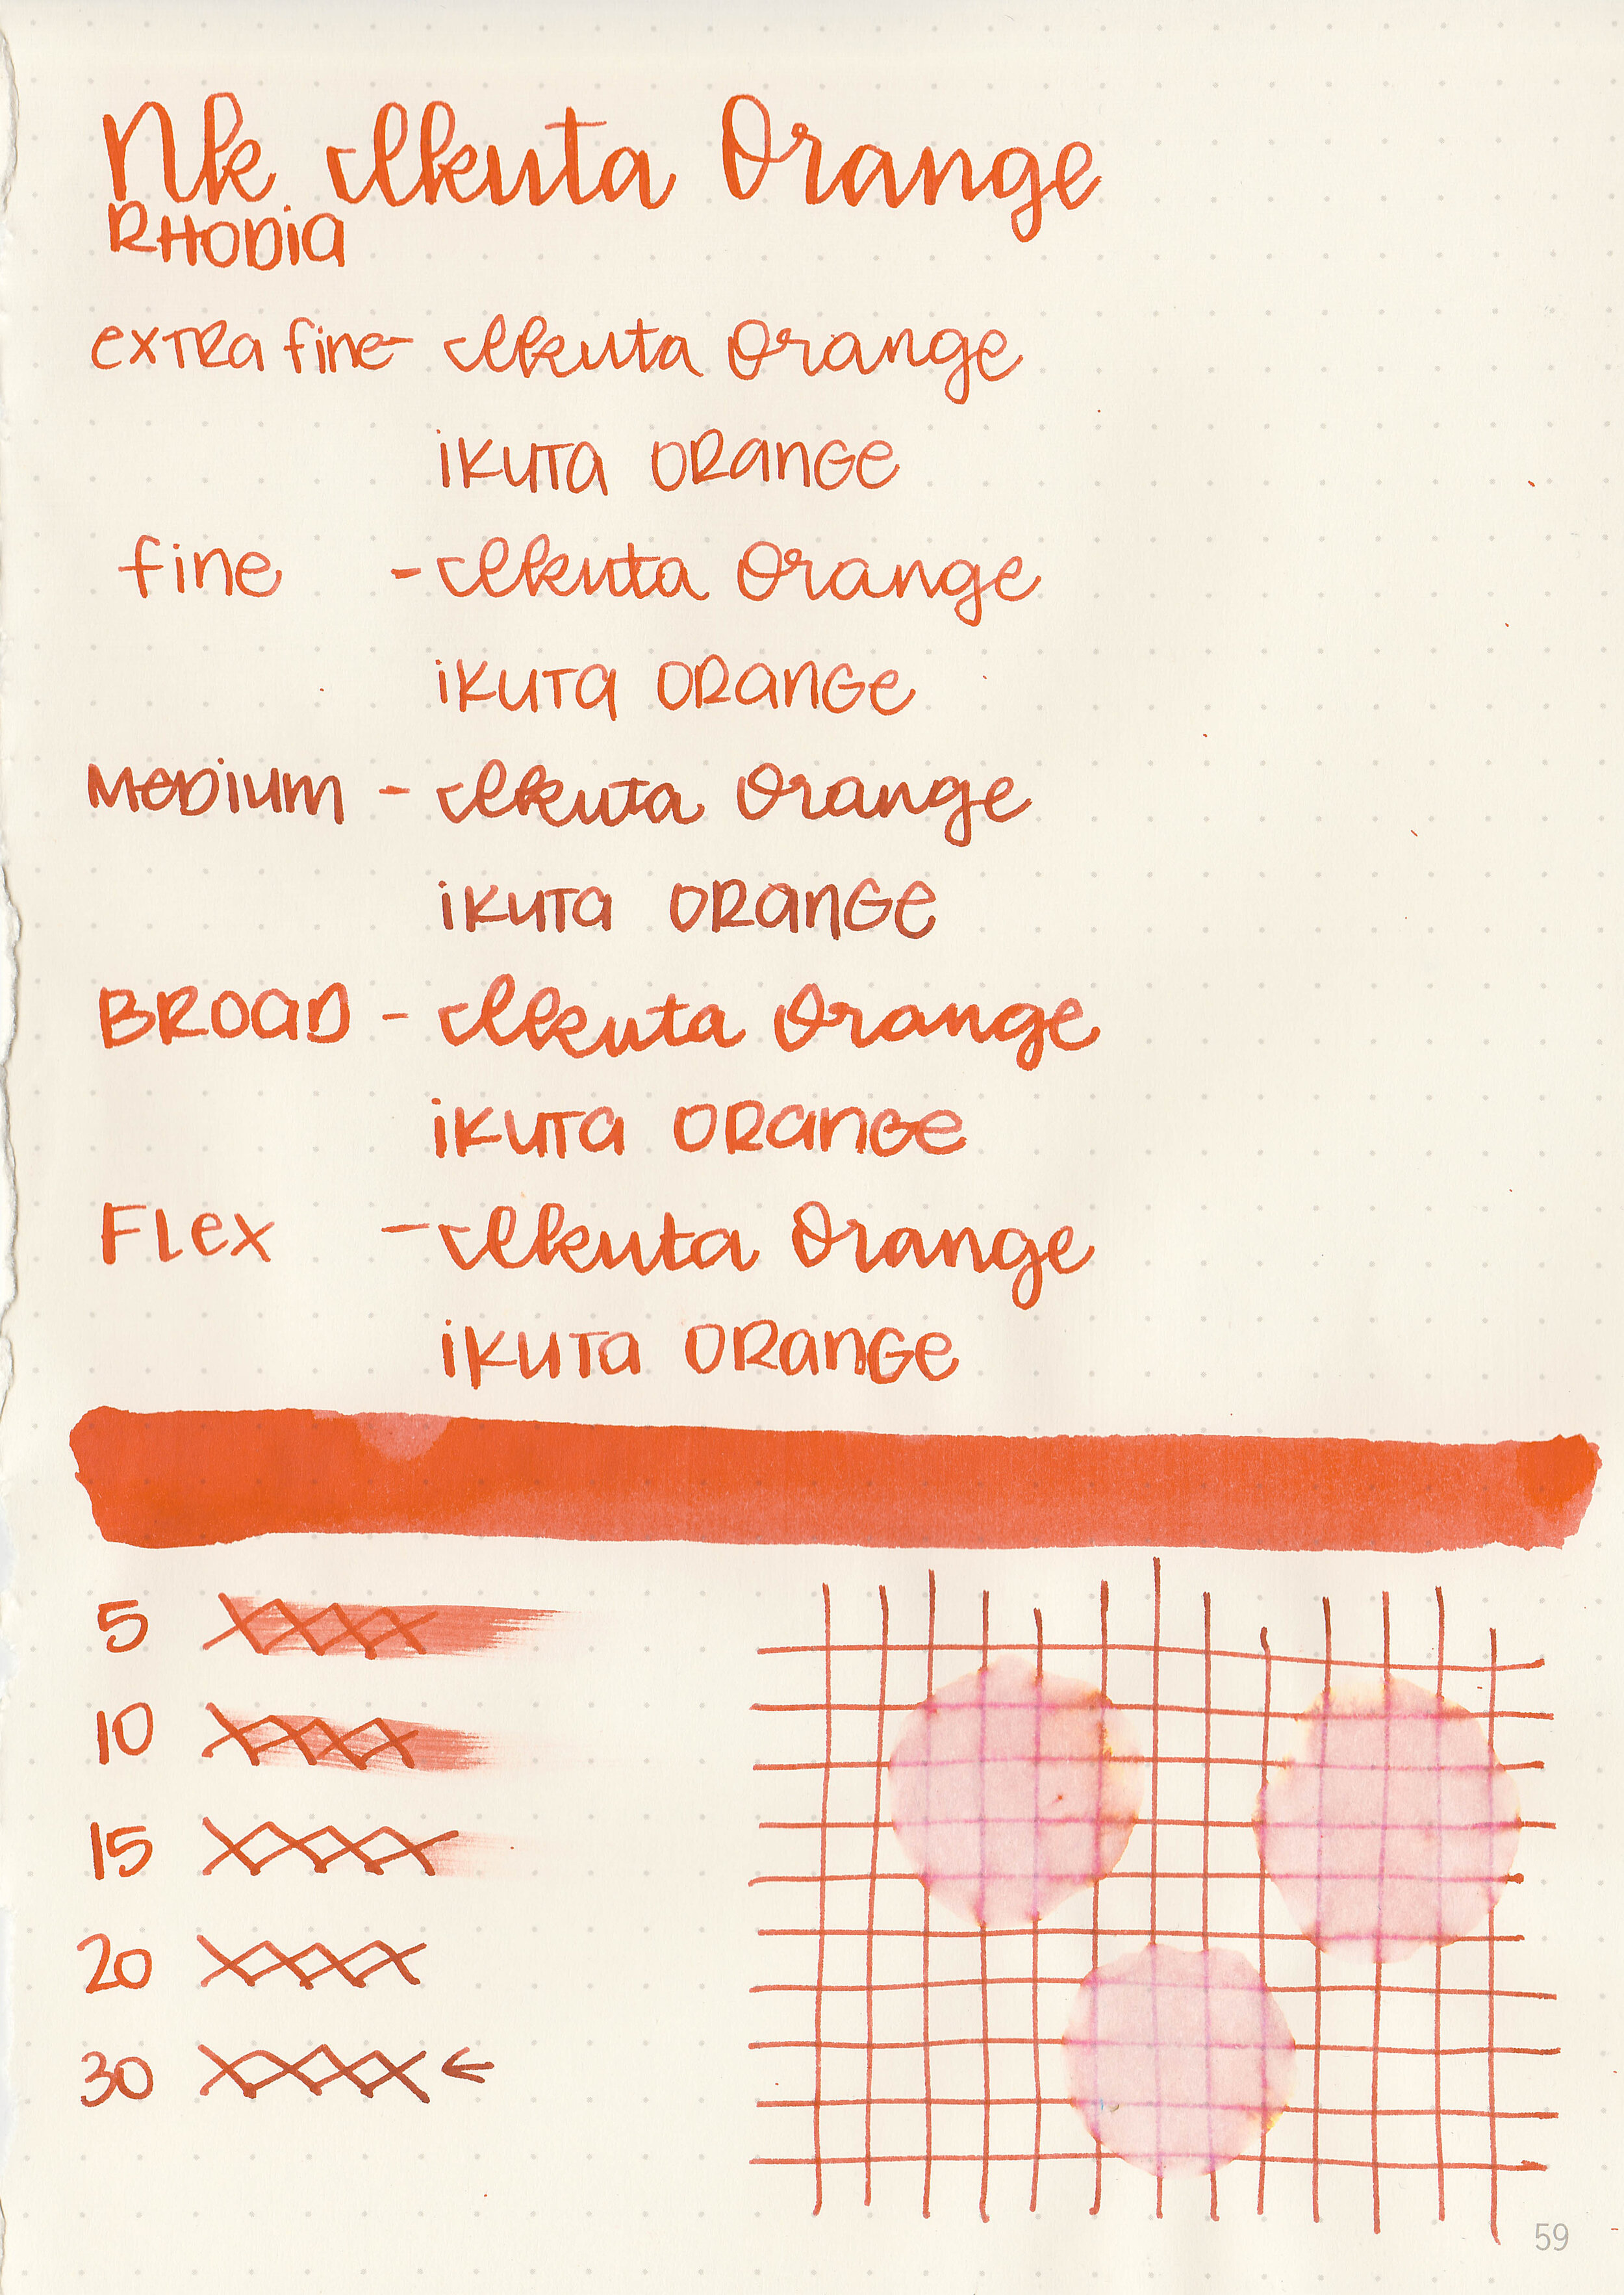 Nk Ikuta Orange
RHODiA
exTRa fine - Ikuta Orange
iKUTA ORanGe
fine - Ikuta Orange
iKUTa ORanGe
MeDiUm - Ikuta Orange
iKUTa ORanGe
BROaD - Ikuta Orange
iKUTa ORanGe
FLex - Ikuta Orange
iKUTa ORanGe
5
10
15
20
30 ←
59